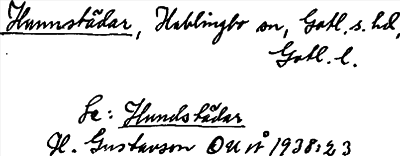 Hunnstädar, Hablingbo sn, Gotl. s. hd,
Gotl. l.
Se: Hundstädar
H. Gustavson OUÅ 1938:23